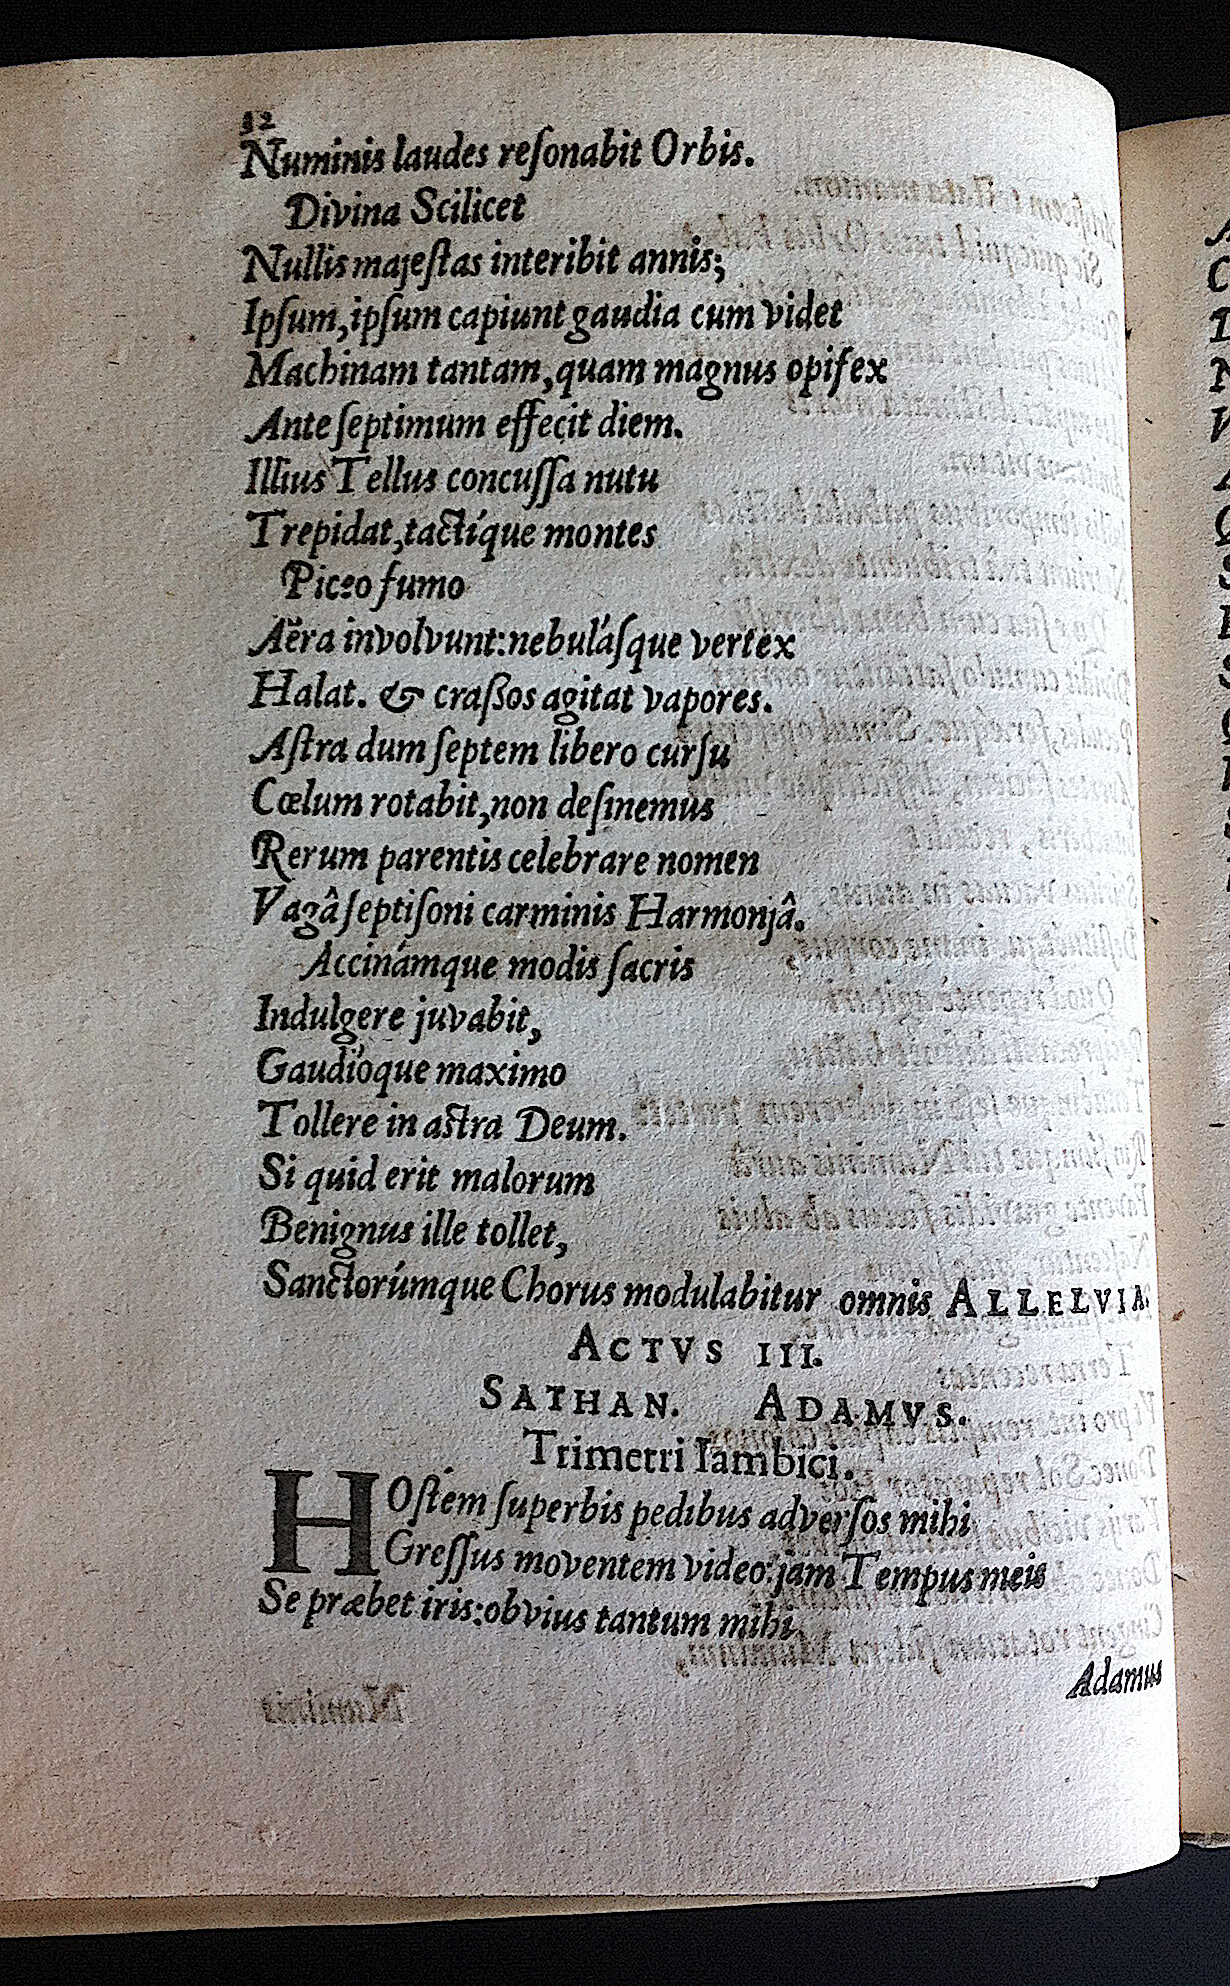 32
Numinis laudes reſonabit Orbis.
Divina Scilicet
Nullis majeſtas interibit annis;
Ipſum, ipſum capiunt gaudia cum videt
Machinam tantam, quam magnus opifex
Ante ſeptimum effecit diem.
Illius Tellus concuſſa nutu
Trepidat, tactíque montes
Piceo fumo
Aëra involvunt: nebulásque vertex
Halat. & craſsos agitat vapores.
Aſtra dum ſeptem libero curſu
Cœlum rotabit, non deſinemus
Rerum parentis celebrare nomen
Vagâ ſeptiſoni carminis Harmonjâ.
Accinámque modis ſacris
Indulgere juvabit,
Gaudióque maximo
Tollere in aſtra Deum.
Si quid erit malorum
Benignus ille tollet,
Sanctorúmque Chorus modulabitur omnis ALLELVIA.
ACTVS III.
SATHAN. ADAMVS.
Trimetri Iambici.
HOſtem ſuperbis pedibus adverſos mihi
Greſſus moventem video: jam Tempus meis
Se præbet iris: obvius tantum mihi
Adamus